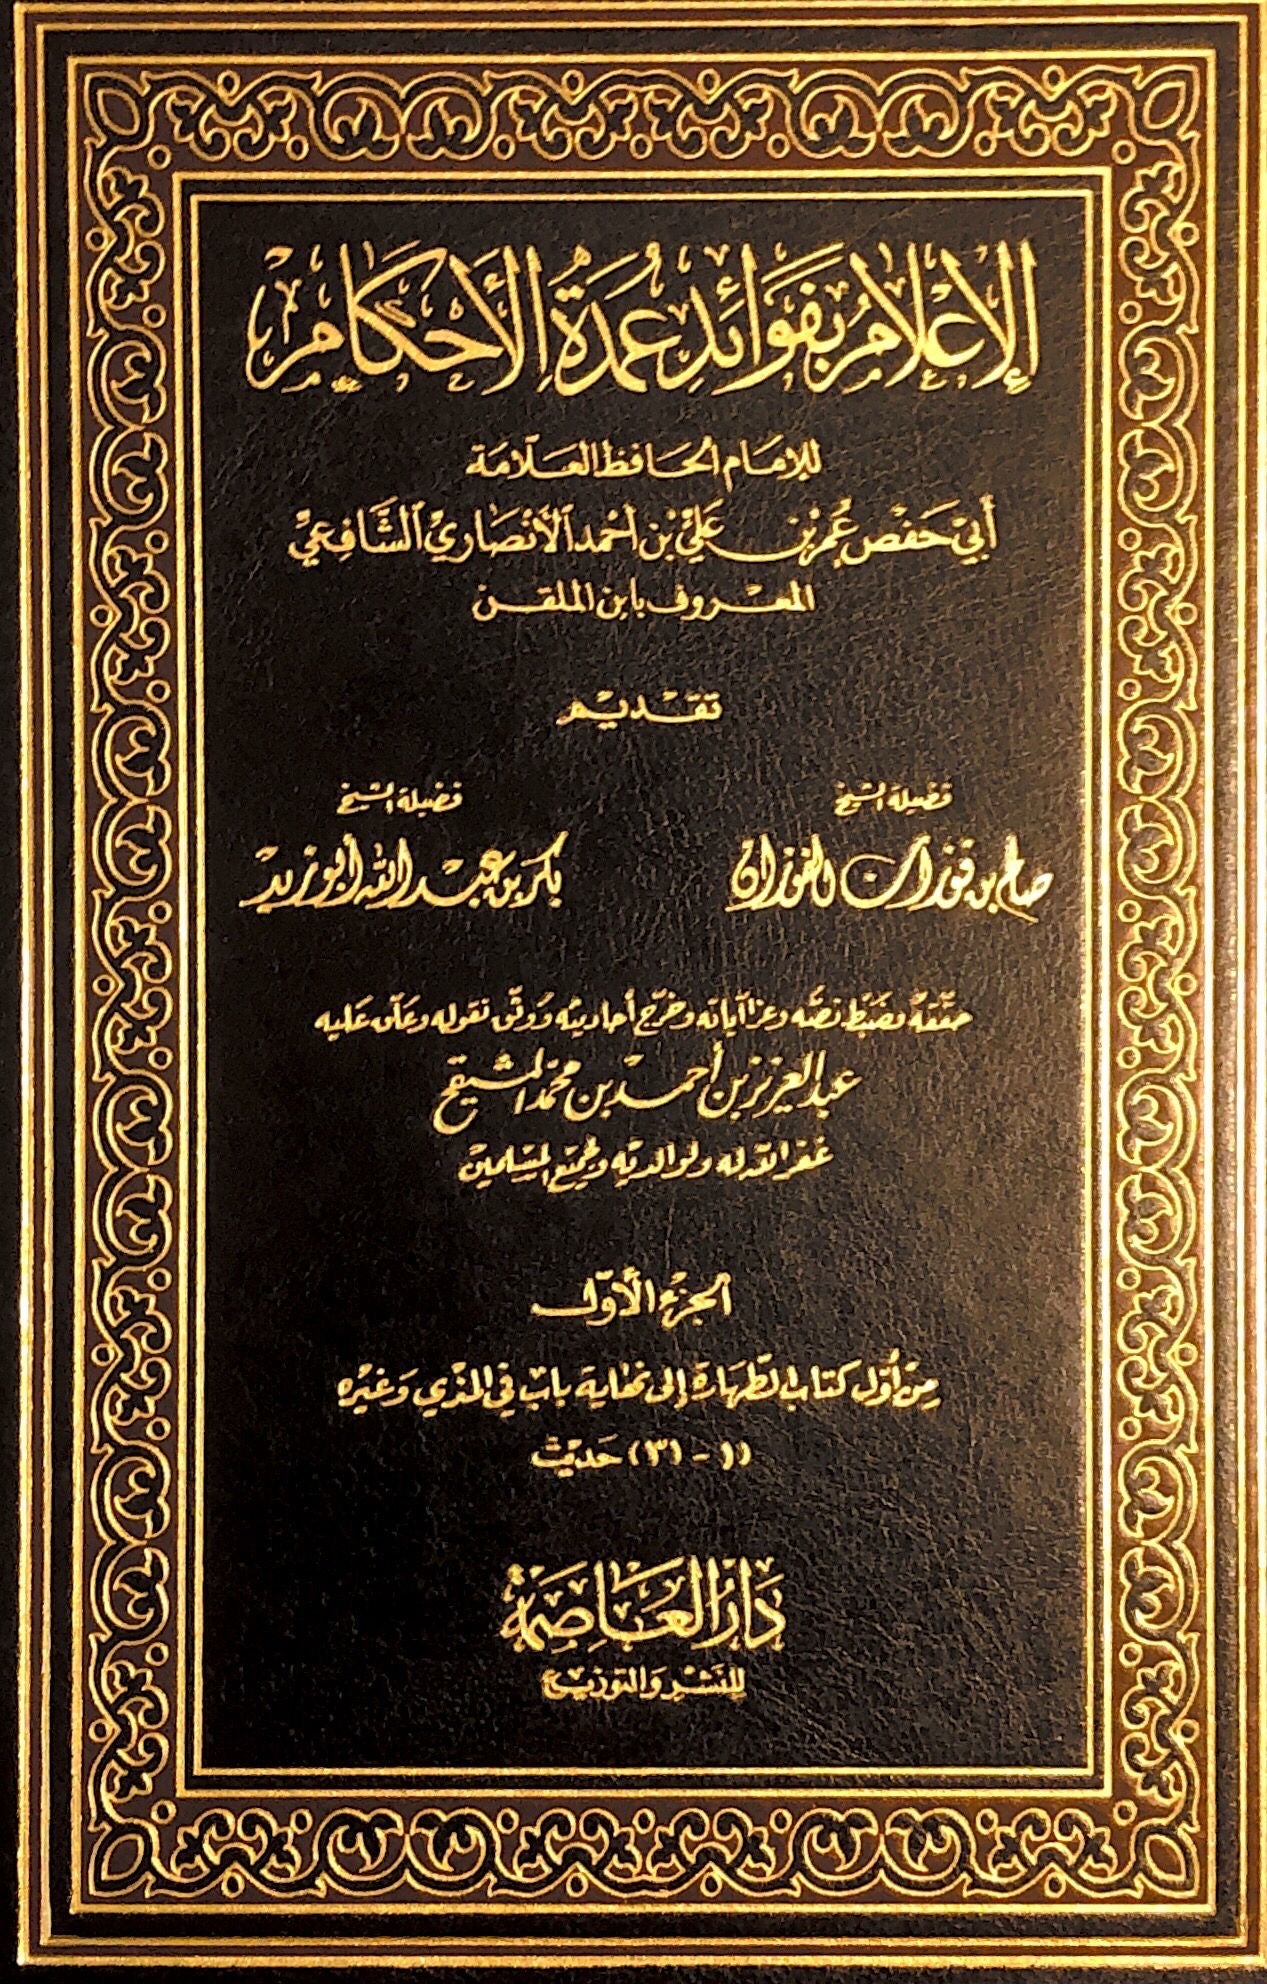 الإعلام بفوائد عمدة الأحكام
للإمام الحافظ العلامة
أبي حفص عمر بن علي بن أحمد الأنصاري الشافعي
المعروف بابن الملقن
تقديم
فضيلة الشيخ
صالح بن فوزان الفوزان
فضيلة الشيخ
بكر بن عبد الله أبو زيد
حققه وضبط نصه وعزا آياته وخرج أحاديثه ووثق نقوله وعلق عليه
عبد العزيز بن أحمد بن محمد المشيقح
غفر الله له ولوالديه ولجميع المسلمين
الجزء الأول
من أول كتاب الطهارة إلى نهاية باب في المذي وغيره
(١ - ٣١) حديث
دار العاصمة
للنشر والتوزيع